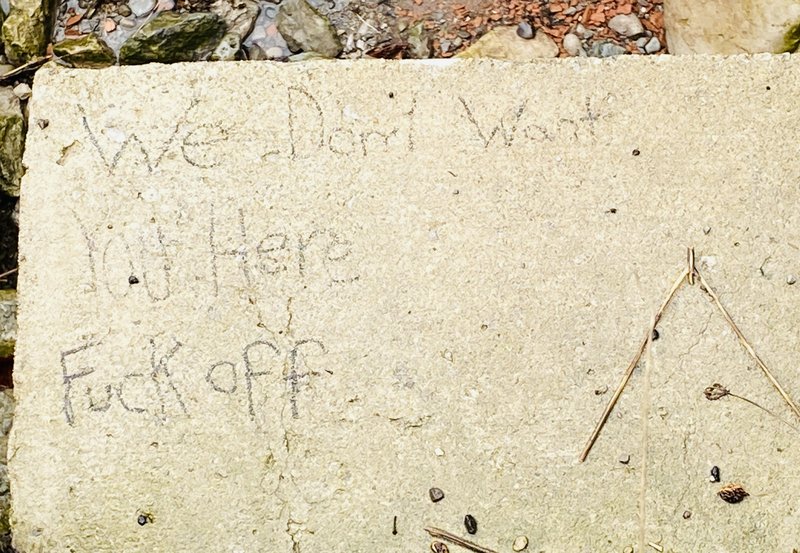 We Don't Want
You Here
Fuck off